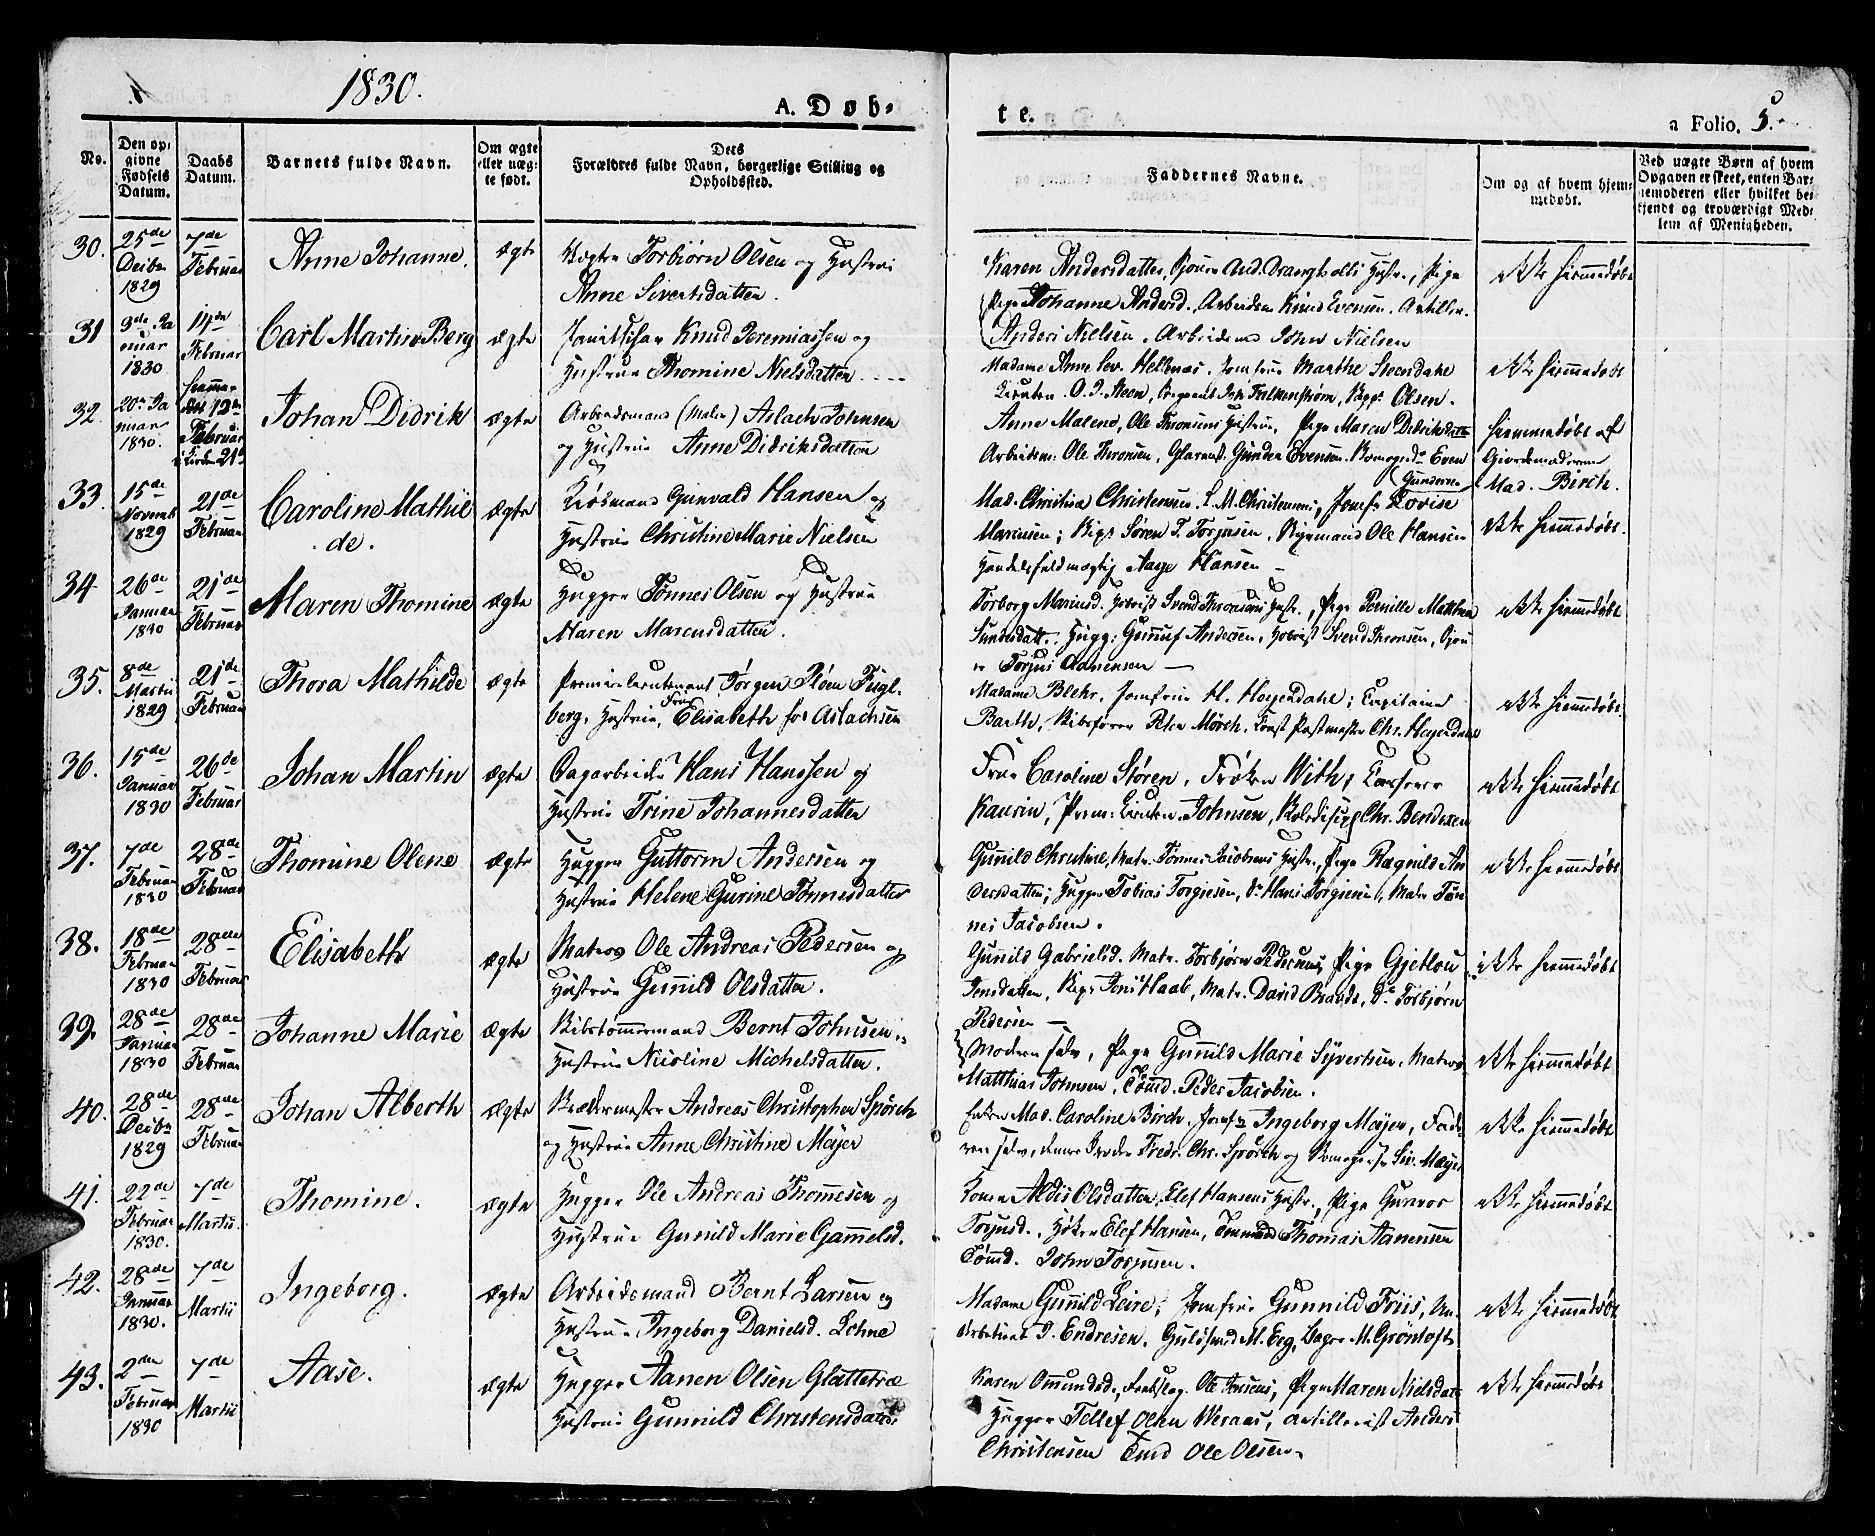 1830.
A. Døb-
te.
a Folio. 5.
No.
Den op-
givne
Fødsels
Datum.
Daabs
Datum.
Barnets fulde Navn.
Om ægte
eller uæg-
te født.
Dets
Forældres fulde Navn, borgerlige Stilling og
Opholdssted.
Faddernes Navne.
Om og af hvem hjem-
medøbt.
Ved uægte Børn af hvem
Opgaven er skeet, enten Bar-
nemoderen eller hvilket be-
kjendt og troværdigt Med-
lem af Menigheden.
30.
25de
Decbr
1829
7de
Februar
Anne Johanne.
ægte
Torbiørn Olsen og Hustrue
Anne Sivertsdatter.
Karen Andersdatter, Hustr., Pige
Pige Johanne Andersd. Arbeidsm. Knud Evensen. Artiller.
Anders Nielsen. Arbeidsm John Nielsen
ikke hiemmedøbt
31
3de Ja
nuar
1830
14de
Februar
Carl Martin Berg
ægte
Knud Jeremiassen og
Hustrue Thomine Nielsdatter
Madame Anne Sev. Hellenæs. Jomfrue Marthe Steensdahl
O. I. Steen, Falkenstrøm, Olsen.
ikke hiemmedøbt
32.
20de Ja
nuar
1830.
hiemme-
døbt 13de
Februar
i Kirken 21de
Johan Didrik
ægte
Arbeidsmand (Maler) Aslach Johnsen
og Hustrue Anne Didriksdatter
Anne Malene, Ole Thronsens Hustrue, Pige Maren Didriksdatter
Arbeidsm: Ole Thronsen, Gunder Evensen. Even
Gundersen
hiemmedøbt af
Giordemoderen
Mad. Birch.
33.
15de
Novemb
1829
21de
Februar
Caroline Mathil
de.
ægte
Kiøbmand Gunvald Hansen og
Hustrue Christine Marie Nielsen
Mad. Christina Christensen. Jomfr Lovise
Marcusen; Søren T. Torjusen. Ole Hansen
Handelsfuldmægtig Aage Hansen
ikke hiemmedøbt.
34
26de
Januar
1830
21de
Februar
Maren Thomine
ægte
Hugger Tønnes Olsen og Hustrue
Maren Marcusdatter.
Torborg Mariusd. Svend Thronsens Hustr., Pige Pernille Mathea
Hugg: Gunnuf Andersen, Svend Thronsen,
Torjus Aanensen
ikke hiemmedøbt
35.
8de
Martii
1829
21de
Februar
Thora Mathilde
ægte
Premierlieutenant Jørgen Fugl-
berg, Hustrue, Frue Elisabeth før Aslachsen
Madame Blehr. Jomfrue H. Høyerdahl; Capitaine
Barth, Skibsfører Peter Mørch. Postmester Chr. Høyerdahl
ikke hiemmedøbt.
36.
15de
Januar
1830
26de
Februar
Johan Martin
ægte
Dagarbeider Hans Hanssen og
Hustrue Trine Johannesdatter
Frue Caroline Støren, Frøken With,
Kaurin, Prem: Lieuten. Johnsen, Chr. Bendixen
ikke hiemmedøbt
37.
7de
Februar
1830
28de
Februar
Thomine Olene
ægte
Hugger Guttorm Andersen og
Hustrue Helene Gurine Tønnesdatter
Gunild Christine, Matr. Tønnes Jacobsens Hustr., Pige Ragnild An
dersdatter; Hugger Tobias Torgiesen, Do Hans Torgiesen, Matr Tøn
nes Jacobsen.
ikke hiemmedøbt
38.
18de
Februar
1830
28de
Februar
Elisabeth
ægte
Matros Ole Andreas Pedersen og
Hustrue Gunild Olsdatter.
Gunild Gabrielsd. Matr. Torbjørn Pedersens, Pige Gjetlou
Jensdatter, Jens Haab, Matr. David Brands, Do Torbjørn
Pedersen
ikke hiemmedøbt
39.
28de
Januar
1830
28de
Februar
Johanne Marie
ægte
Skibstømmermand Bernt Johnsen
Hustrue Nicoline Michelsdatter.
Moderen selv, Pige Gunild Marie Syvertsen, Matros
Matthias Johnsen. Tømd. Peder Jacobsen.
ikke hiemmedøbt
40.
28de
Decbr
1829
28de
Februar
Johan Alberth
ægte
Andreas Christopher Spørch
og Hustrue Anne Christine Mayer
Enken Mad. Caroline Birch. Jomfr Ingeborg Mayer, Fade-
ren selv, dennes Broder Fredr. Chr. Spørch og Siv. Mayer
ikke hiemmedøbt
41.
22de
Februar
1830.
7de
Martii.
Thomine.
ægte
Hugger Ole Andreas Thommesen og
Hustrue Gunild Marie Gammelsd.
Konen Aldis Olsdatter, Elef Hansens Hustr., Pige Guravor
Torjusd. Høker Elef Hansen, Tømmermand Thomas Aanensen
Tømd. John Torjusen.
ikke hiemmedøbt
42.
28de
Januar
1830.
7de
Martii
Ingeborg.
ægte
Arbeidsmand Bernt Larsen og
Hustrue Ingeborg Danielsd. Lohne
Madame Gunild Leire, Jomfrue Gunnild Friis, Un
I. Endresen. Guldsmed M. Eeg, Bager M. Grøntoft
ikke hiemmedøbt
43.
2den
Februar
1830
7de
Martii
Aase.
ægte
Hugger Aanen Olsen Glattetræ
Hustrue Gunnild Christensdatter
Karen Omundsd., Ole Jensens, Pige Maren Nielsdatter
Hugger Tellef Olsen Weraas, Artillerist Anders
Christensen Tmd Ole Olsen.
ikke hiemmedøbt